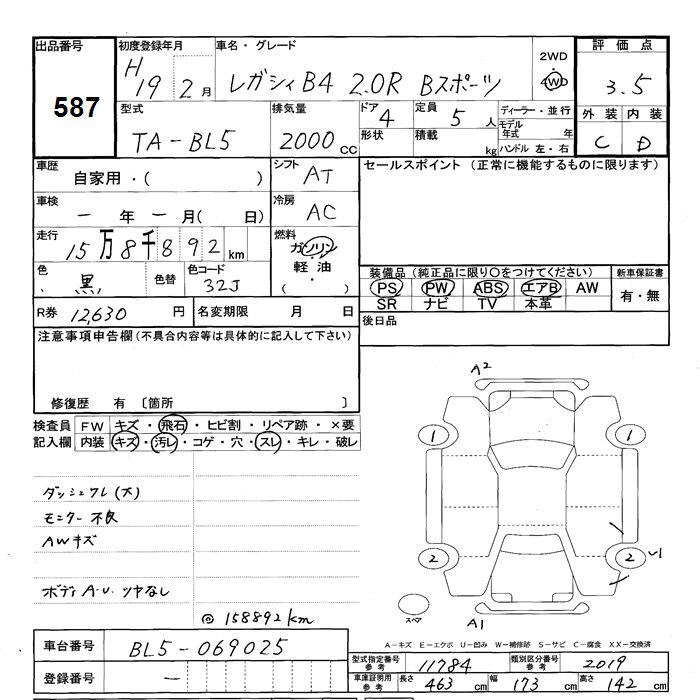 出品番号 初度登録年月 車名・グレード 2WD 評価点
587 H19 2月 レガシィB4 2.0R Bスポーツ 4WD 3.5
型式 排気量 ドア 定員 ディーラー・並行 外装 内装
TA-BL5 2000cc 4 5人 モデル年式 年 C D
形状 積載 kg ハンドル 左・右
車歴 シフト セールスポイント (正常に機能するものに限ります)
自家用・( ) AT
車検 冷房
一年一月( 日) AC
走行 燃料
15万8千892km ガソリン
軽油
( )
色 色替 色コード 装備品 (純正品に限り〇をつけてください) 新車保証書
黒 32J PS PW ABS エアB AW 有・無
SR ナビ TV 本革
R券 12,630円 名変期限 月 日 後日品
注意事項申告欄(不具合内容等は具体的に記入して下さい)
修復歴 有 〔箇所 〕
検査員 FW キズ・飛石・ヒビ割・リペア跡・×要
記入欄 内装 キズ・汚レ・コゲ・穴・スレ・キレ・破レ
ダッシュワレ(大)
モニター不良
AWキズ
ボディA.U.ツヤなし
@158892km
A2
1 1
2 2
A1
スペア
A-キズ E-エクボ U-凹み W-補修跡 S-サビ C-腐食 XX-交換済
車台番号 BL5-069025
登録番号 —
型式指定番号参考 11784 類別区分番号参考 2019
車庫証明用参考 長さ 463cm 幅 173cm 高さ 142cm